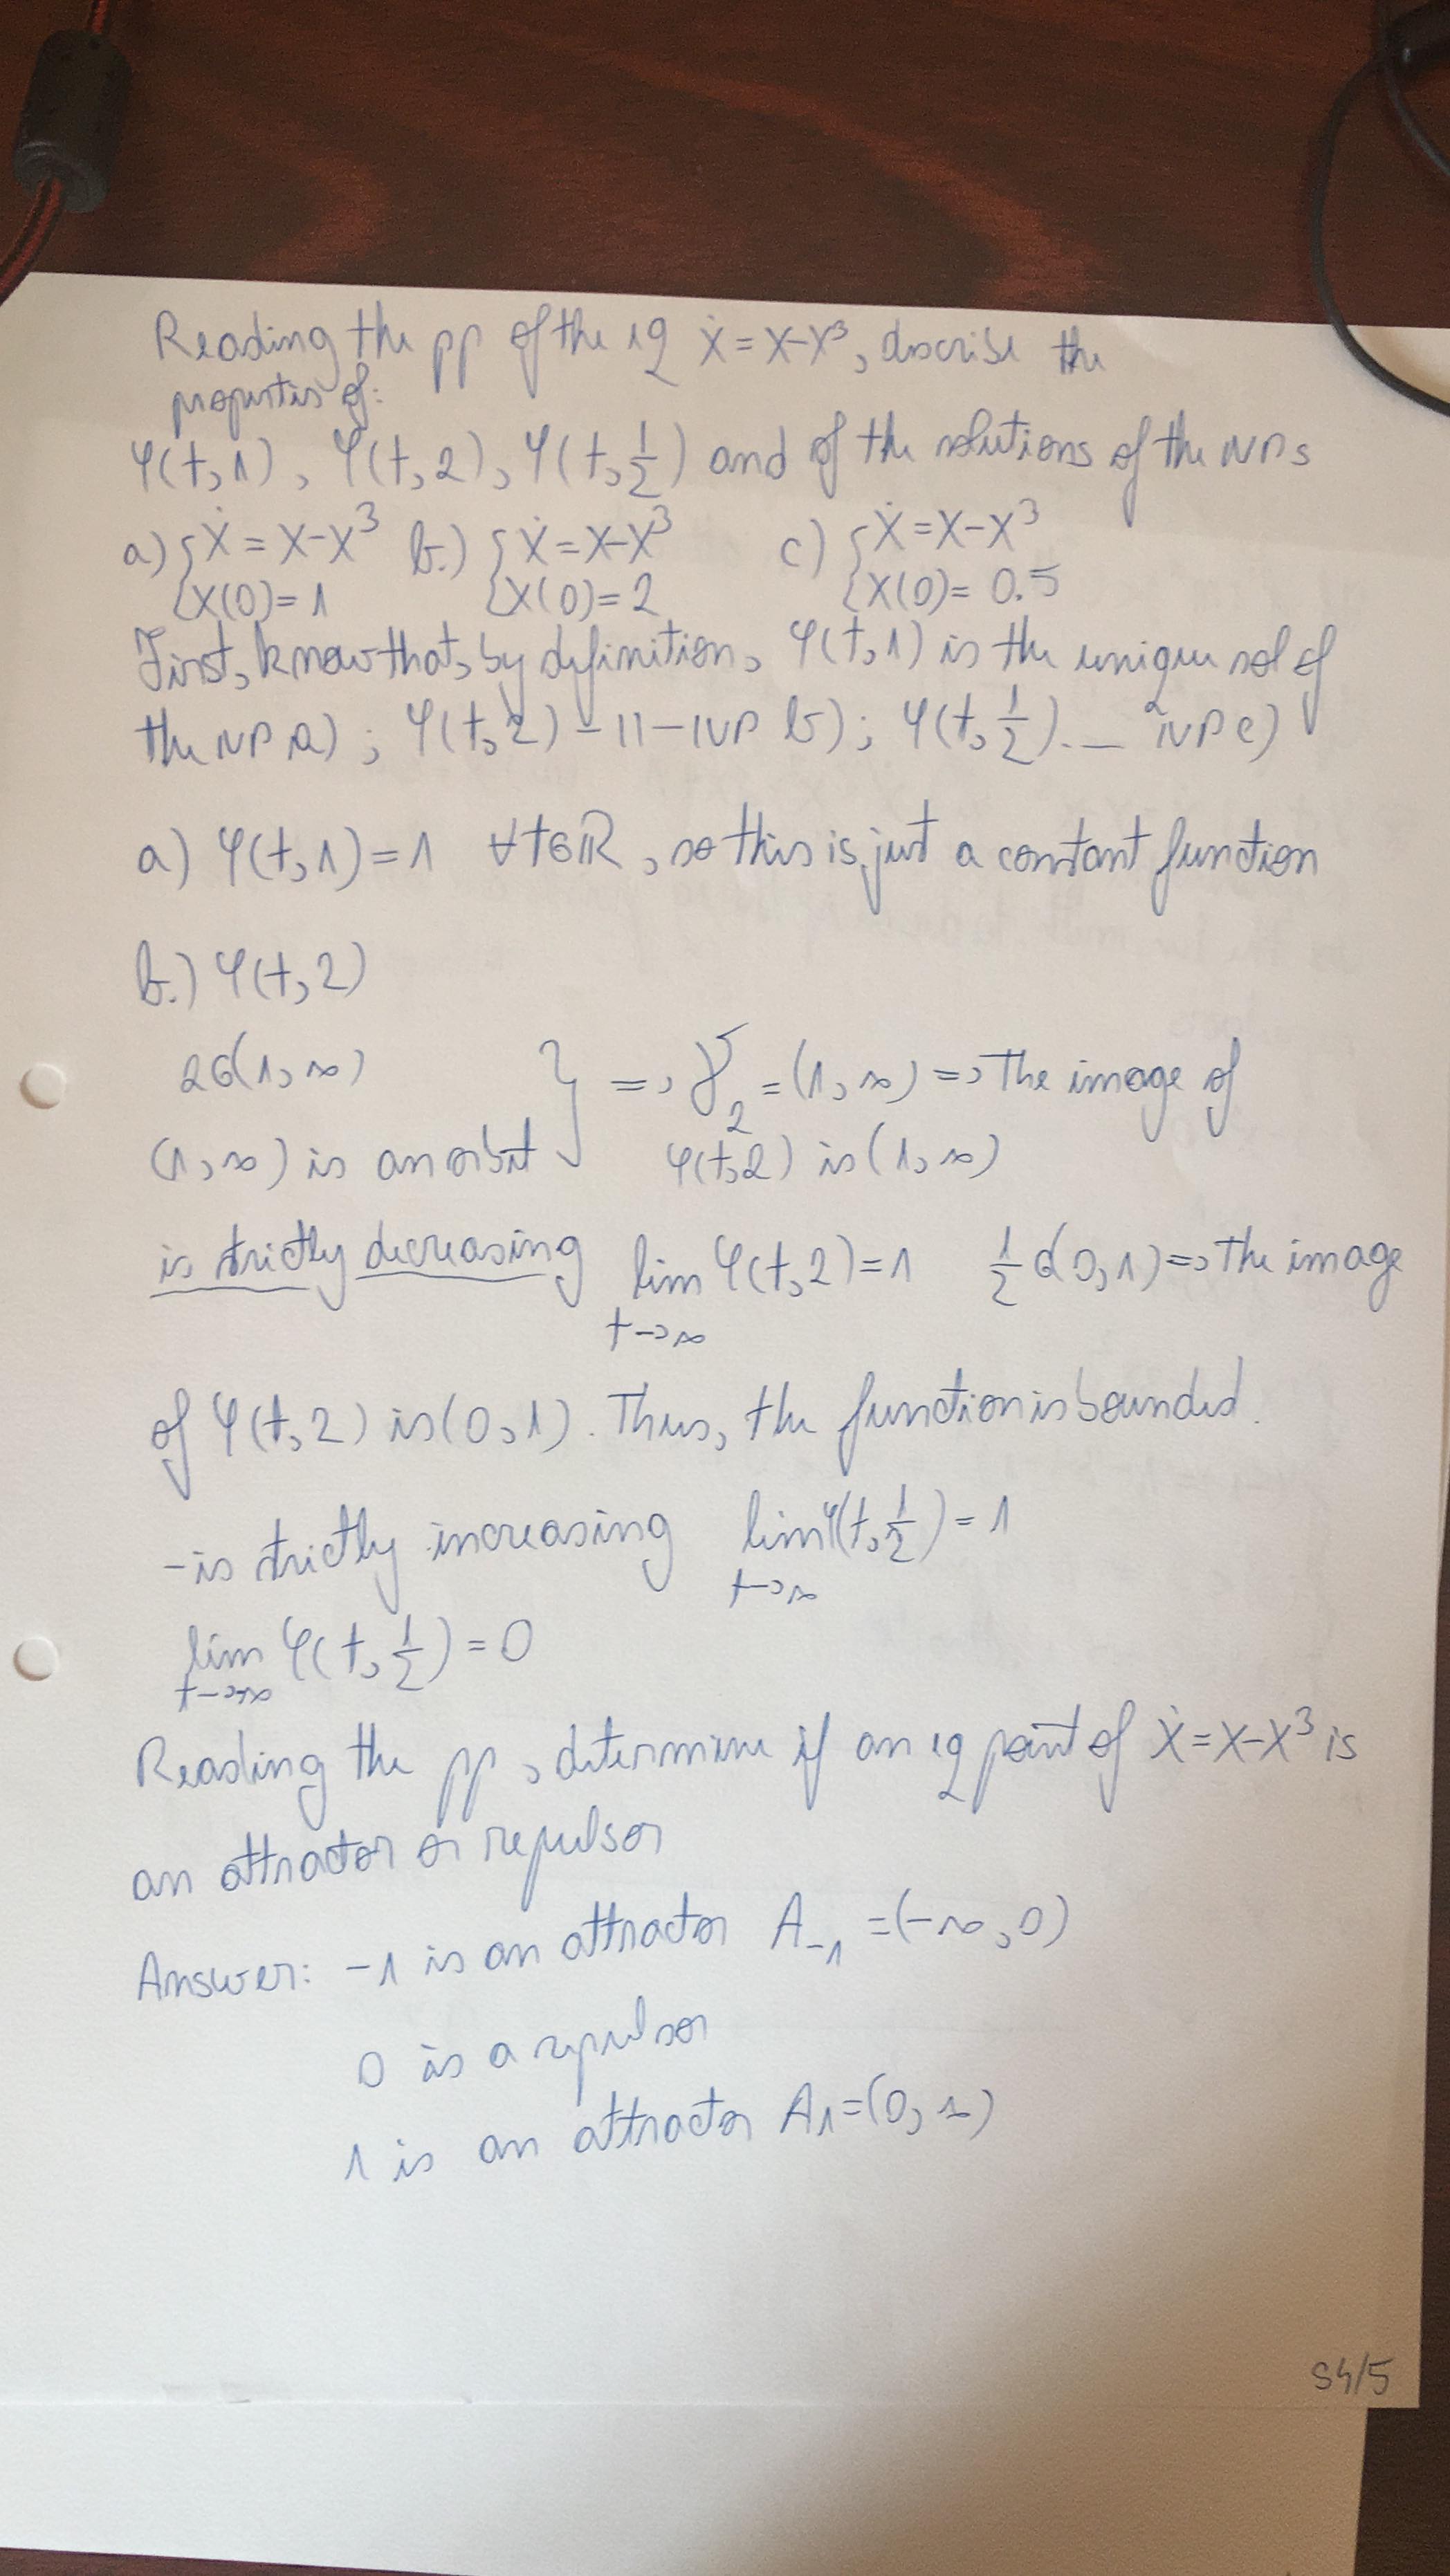 Reading the pp of the eq ẋ = x-x³, describe the
properties of:
φ(t,1), φ(t,2), φ(t,1/2) and of the solutions of the IVPs
a) {ẋ = x-x³ b.) {ẋ = x-x³ c) {ẋ = x-x³
{x(0)=1 {x(0)=2 {x(0)= 0.5
First, know that, by definition, φ(t,1) is the unique sol of
the IVP a) ; φ(t,2) -11- IVP b) ; φ(t,1/2) .— IVP c)
a) φ(t,1)=1 ∀t∈ℝ, so this is just a constant function
b.) φ(t,2)
2∈(1,∞) } => γ₂ = (1,∞) => the image of
(1,∞) is an orbit φ(t,2) is (1,∞)
is strictly decreasing lim φ(t,2)=1 1/2 ∈(0,1) => the image
t->∞
of φ(t,2) is (0,1). Thus, the function is bounded.
-is strictly increasing lim φ(t,1/2)=1
t->∞
lim φ(t,1/2)=0
t->-∞
Reading the pp, determine if an eq point of ẋ=x-x³ is
an attractor or repulsor
Answer: -1 is an attractor A₋₁ =(-∞,0)
0 is a repulsor
1 is an attractor A₁=(0,∞)
S4/5